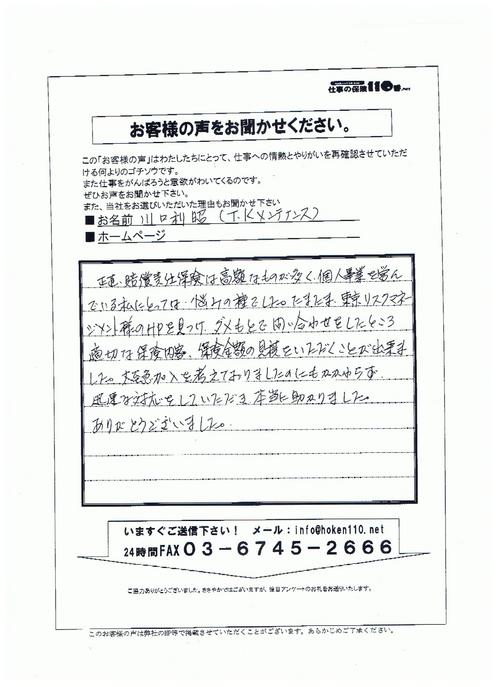 仕事の保険110番.net
お客様の声をお聞かせください。
この「お客様の声」はわたしたちにとって、仕事への情熱とやりがいを再確認させていただ
ける何よりのゴチソウです。
また仕事をがんばろうと意欲がわいてくるのです。
ぜひお声をお聞かせ下さい。
また、当社をお選びいただいた理由もお聞かせ下さい
■お名前 川口利昭 (T.Kメンテナンス)
■ホームページ
正直、賠償責任保険は高額なものが多く、個人事業を営ん
でいる私にとっては、悩みの種でした。たまたま、東京リスクマネー
ジメント様のHPを見つけ、ダメもとで問い合わせをしたところ
適切な保険内容、保険金額の見積をいただくことが出来ま
した。大至急加入を考えておりましたのにもかかわらず、
迅速な対応をしていただき、本当に助かりました。
ありがとうございました。
いますぐご送信下さい! メール:info@hoken110.net
24時間FAX 03-6745-2666
ご協力ありがとうございました。ささやかではございますが、後日アンケートのお礼をお送りいたします。
このお客様の声は弊社のHP等で掲載させていただくことがございます。あらかじめご了承ください。